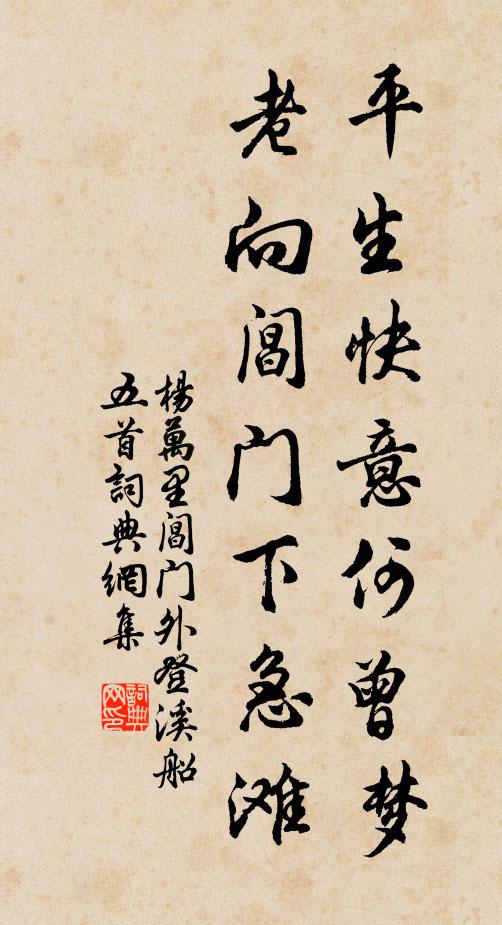 平生快意何曾梦
老向阊门下急滩
楊萬里阊门外登溪船
五首詞典網集
詞典网印